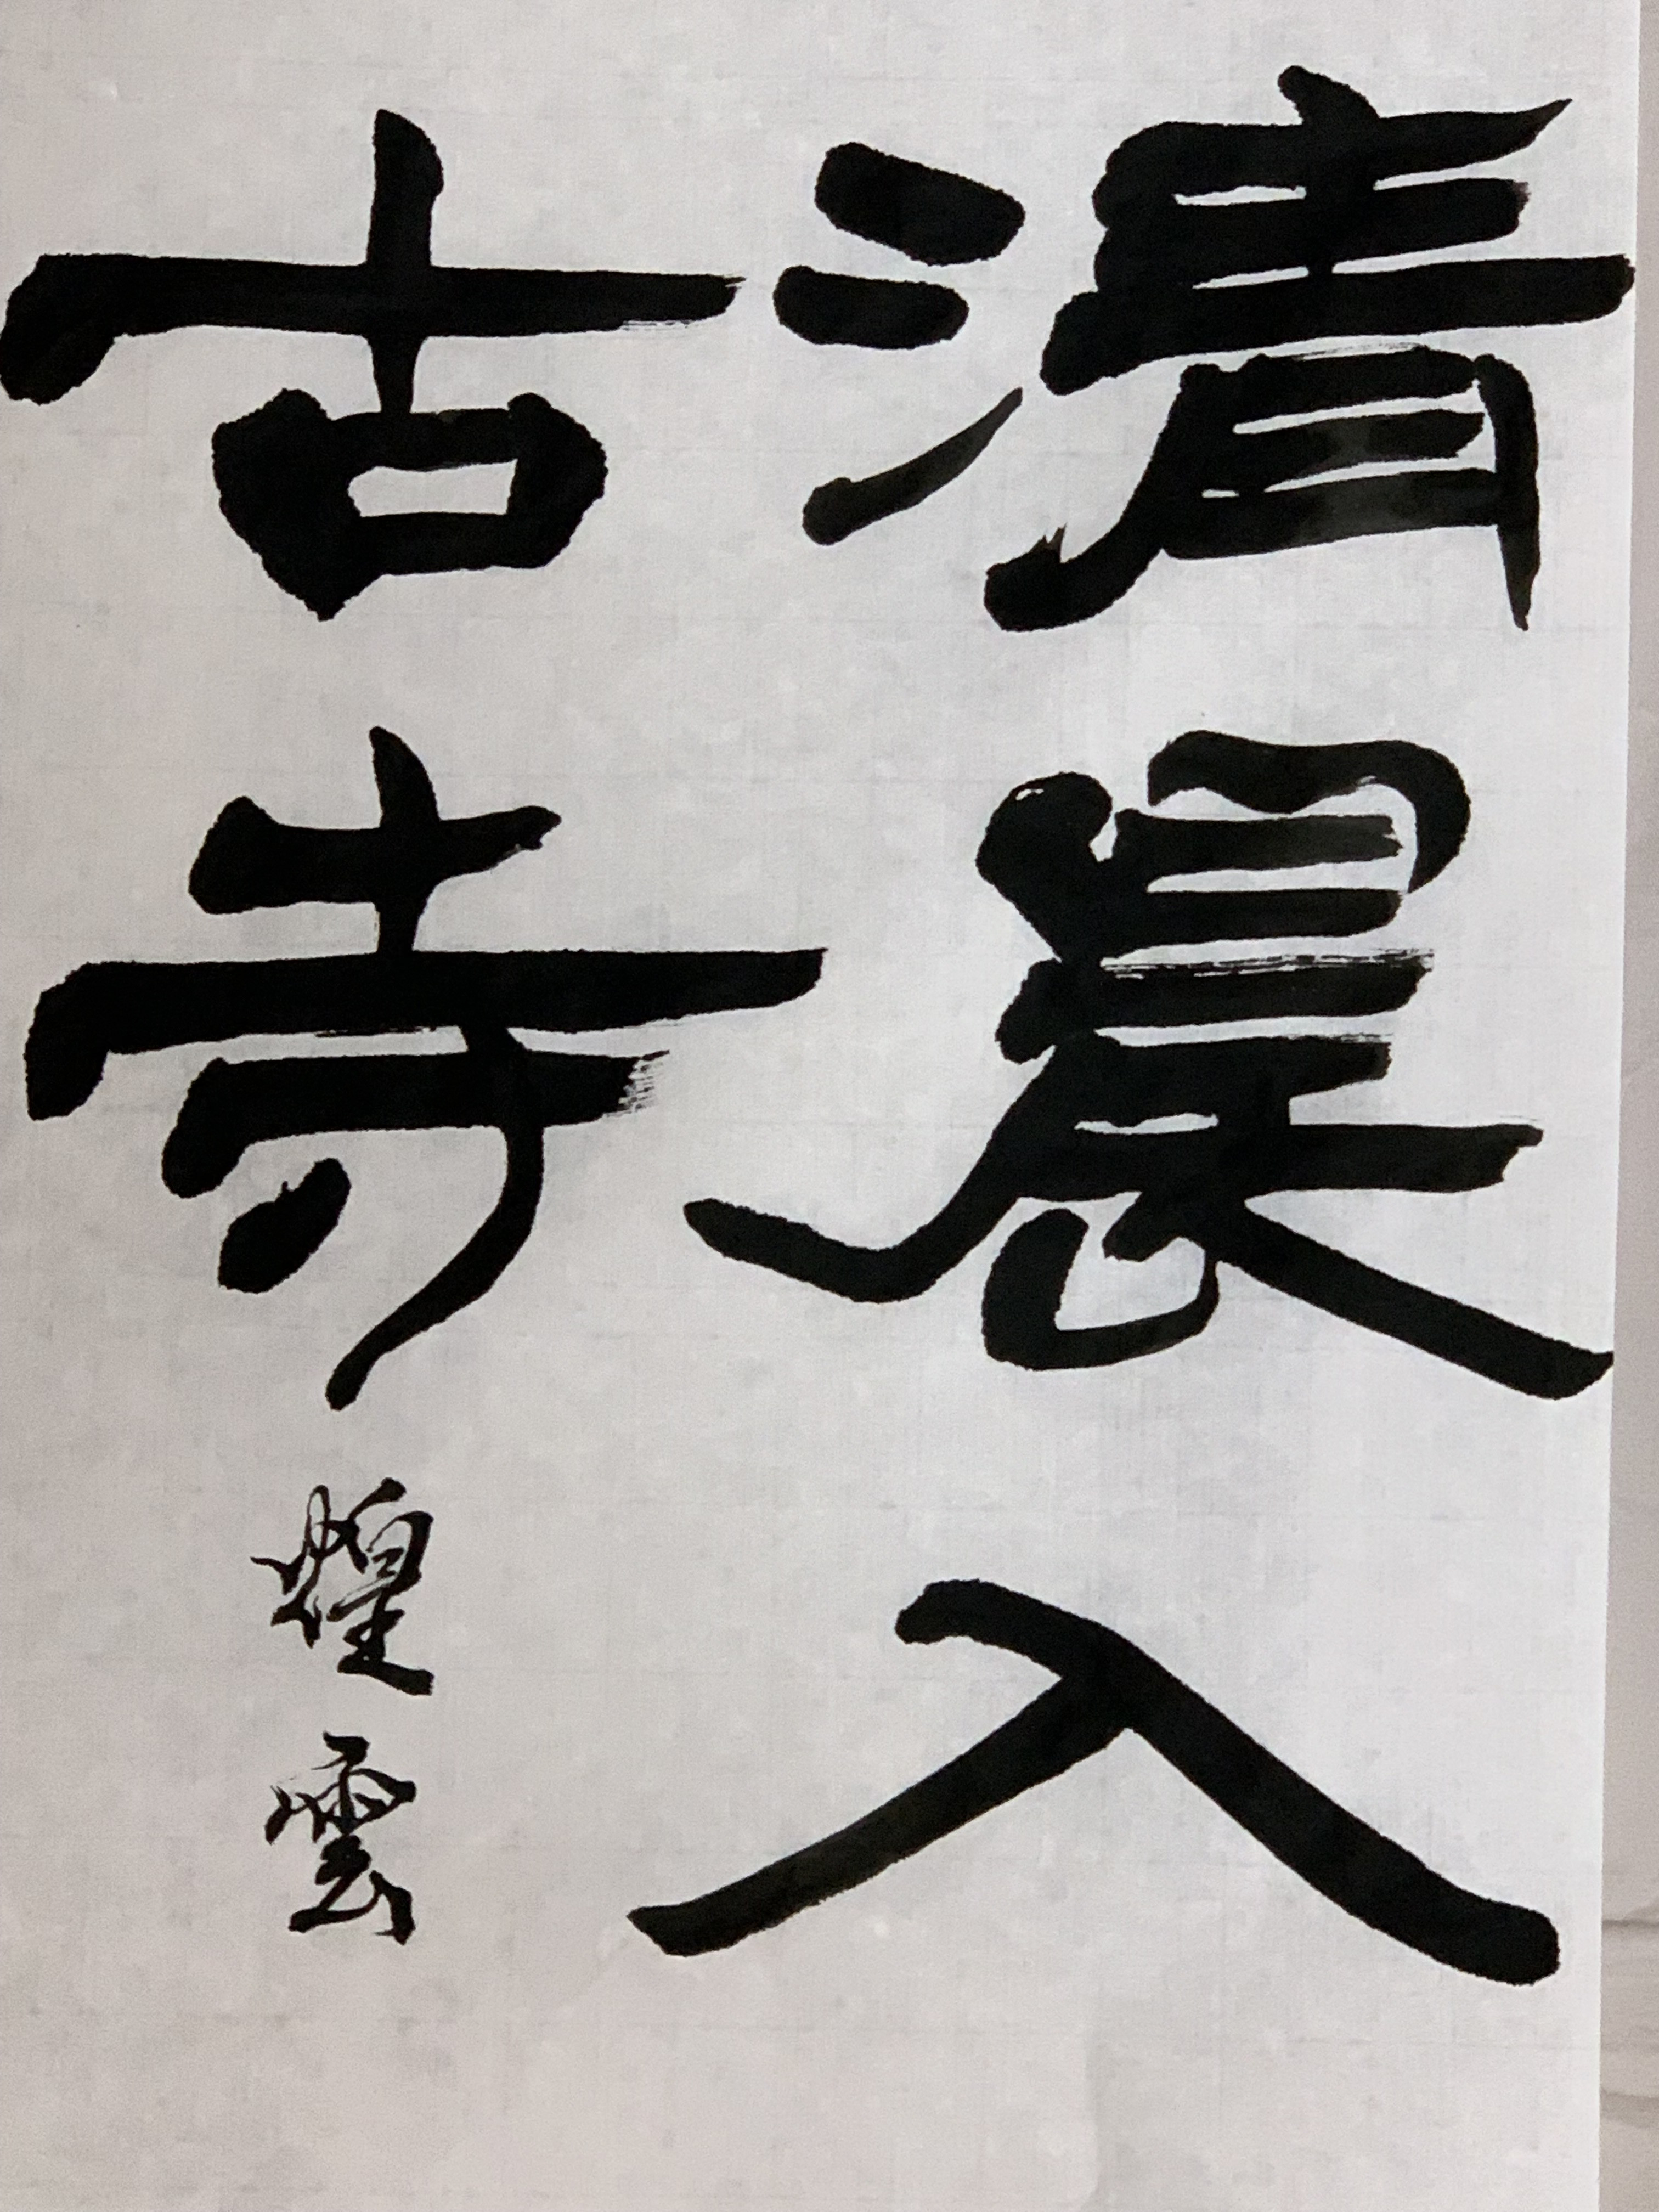 清晨入
古寺 煌雲